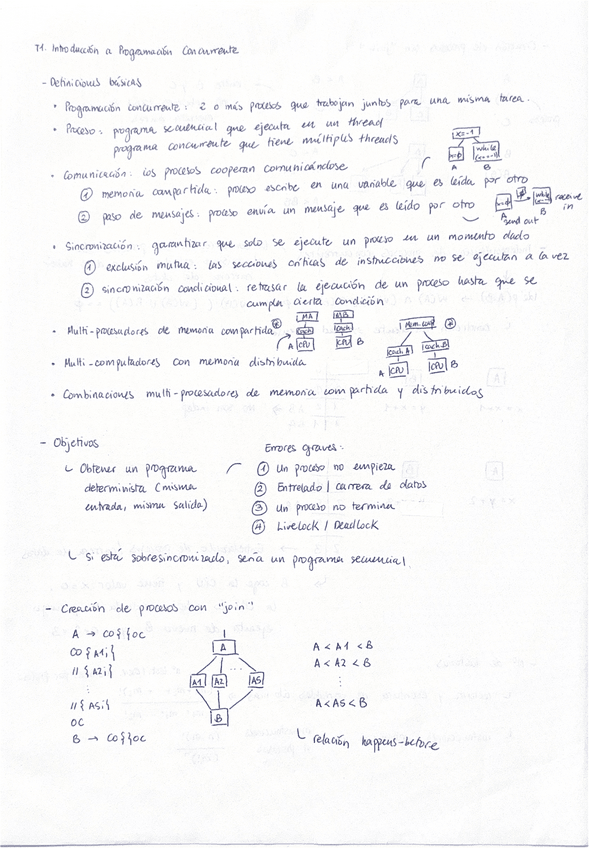 T1. Introducción a Programación Concurrente
- Definiciones básicas
• Programación concurrente: 2 o más procesos que trabajan juntos para una misma tarea.
• Proceso: programa secuencial que ejecuta en un thread
programa concurrente que tiene múltiples threads
x=-1
x=0
while
A B
• Comunicación: los procesos cooperan comunicándose
① memoria compartida: proceso escribe en una variable que es leída por otro
② paso de mensajes: proceso envía un mensaje que es leído por otro
A B
send out
receive
in
• Sincronización: garantizar que solo se ejecute un proceso en un momento dado
① exclusión mutua: las secciones críticas de instrucciones no se ejecutan a la vez
② sincronización condicional: retrasar la ejecución de un proceso hasta que se
cumpla cierta condición
• Multi-procesadores de memoria compartida
MA MB
cach cach
A CPU CPU B
Mem. comp
cach A cach B
A CPU CPU B
• Multi-computadores con memoria distribuida
• Combinaciones multi-procesadores de memoria compartida y distribuidos
- Objetivos
↳ Obtener un programa
determinista (misma
entrada, misma salida)
Errores graves:
① Un proceso no empieza
② Entrelado / carrera de datos
③ Un proceso no termina
④ Livelock / Deadlock
↳ si está sobresincronizado, sería un programa secuencial.
- Creación de procesos con "join"
A → CO{}OC
CO{A1;}
// {A2;}
⋮
// {A5;}
OC
B → CO{}OC
A
A1 A2 ... A5
B
A < A1 < B
A < A2 < B
⋮
A < A5 < B
↳ relación happens-before